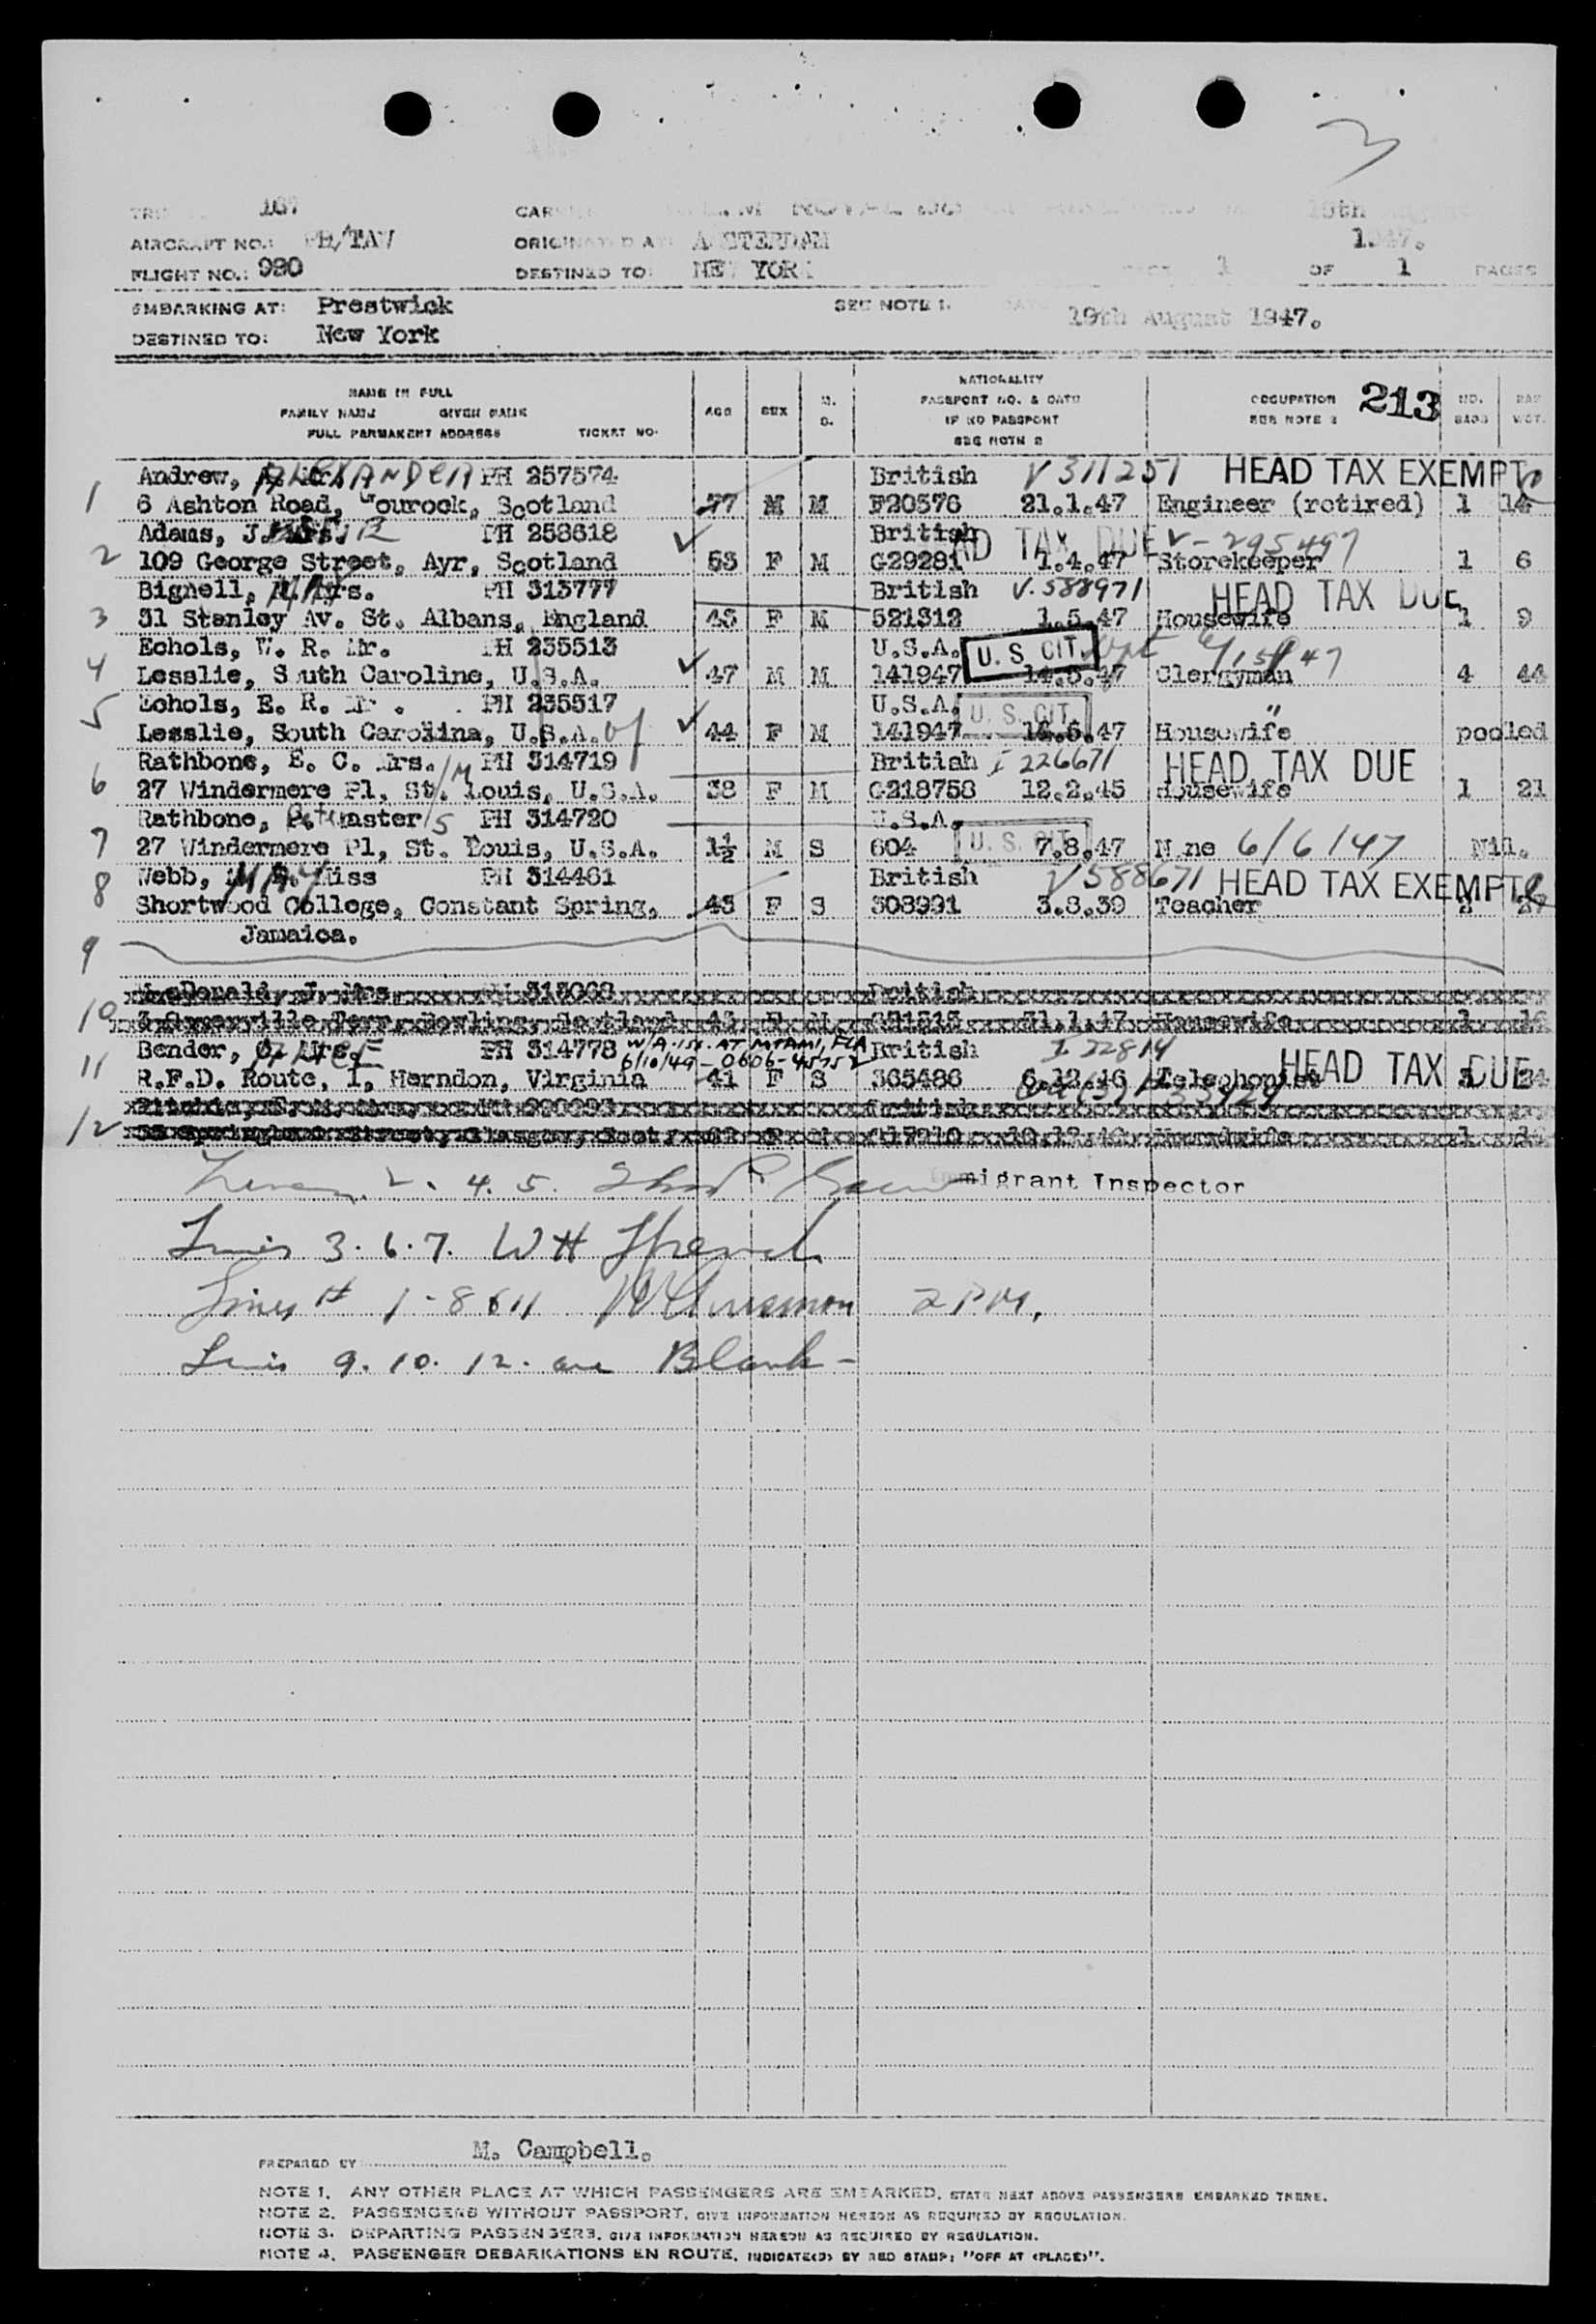 3
167
AIRCRAFT NO.: PH/TAW ORIGINATED AT AMSTERDAM 1947.
FLIGHT NO.: 990 DESTINED TO: NEW YORK 1 OF 1 PAGES
EMBARKING AT: Prestwick SEE NOTE 1. 19th August 1947.
DESTINED TO: New York
NAME IN FULL
FAMILY NAME GIVEN NAME
FULL PERMANENT ADDRESS TICKET NO.
AGE SEX M. S.
NATIONALITY
PASSPORT NO. & DATE
IF NO PASSPORT
SEE NOTE 2
OCCUPATION
SEE NOTE 2
213
NO. BAGS
BAG WGT.
Andrew, ALEXANDER PH 257574 British V311251 HEAD TAX EXEMPT
1 6 Ashton Road, Gourock, Scotland 77 M M F20576 21.1.47 Engineer (retired) 1 14
Adams, J. Mrs. PH 258618 British HEAD TAX DUE V-295497
2 109 George Street, Ayr, Scotland 53 F M G29281 1.4.47 Storekeeper 1 6
Bignell, Mrs. PH 313777 British V.588971 HEAD TAX DUE
3 31 Stanley Av. St. Albans, England 43 F M 521312 1.5.47 Housewife 1 9
Echols, W. R. Mr. PH 235513 U.S.A. U. S. CIT.
4 Lesslie, South Caroline, U.S.A. 47 M M 141947 14.5.47 Clergyman 4 44
Echols, E. R. PH 235517 U.S.A. U. S. CIT. "
5 Lesslie, South Carolina, U.S.A. 44 F M 141947 14.5.47 Housewife pooled
Rathbone, E. C. Mrs. PH 314719 British I 226671 HEAD TAX DUE
6 27 Windermere Pl, St. Louis, U.S.A. 38 F M C218758 12.2.45 Housewife 1 21
Rathbone, Peter Master S PH 314720 U.S.A. U. S. CIT.
7 27 Windermere Pl, St. Louis, U.S.A. 1½ M S 604 7.8.47 None 6/6/47 Nil.
Webb, MAY Miss PH 314461 British V588671 HEAD TAX EXEMPT
8 Shortwood College, Constant Spring, 43 F S 308991 3.8.39 Teacher 2 27
Jamaica.
9
McDonald, J. Mrs. 315068 British
10 Housewife 1
Bender, Mrs. PH 314778 W/A. ist. AT MIAMI, FLA British I 22814
6/10/49-0606-45752
11 R.F.D. Route, 1, Herndon, Virginia 41 F S 365486 6.12.46 Telephonist HEAD TAX DUE
12
Lines 2. 4. 5. Immigrant Inspector
Lines 3. 6. 7. W H French
Lines # 1-8 & 11 2 P.M.
Lines 9. 10. 12. are Blank-
PREPARED BY M. Campbell.
NOTE 1. ANY OTHER PLACE AT WHICH PASSENGERS ARE EMBARKED, STATE NEXT ABOVE PASSENGERS EMBARKED THERE.
NOTE 2. PASSENGERS WITHOUT PASSPORT, GIVE INFORMATION HEREON AS REQUIRED BY REGULATION.
NOTE 3. DEPARTING PASSENGERS, GIVE INFORMATION HEREON AS REQUIRED BY REGULATION.
NOTE 4. PASSENGER DEBARKATIONS EN ROUTE, INDICATE(D) BY RED STAMP: "OFF AT (PLACE)".